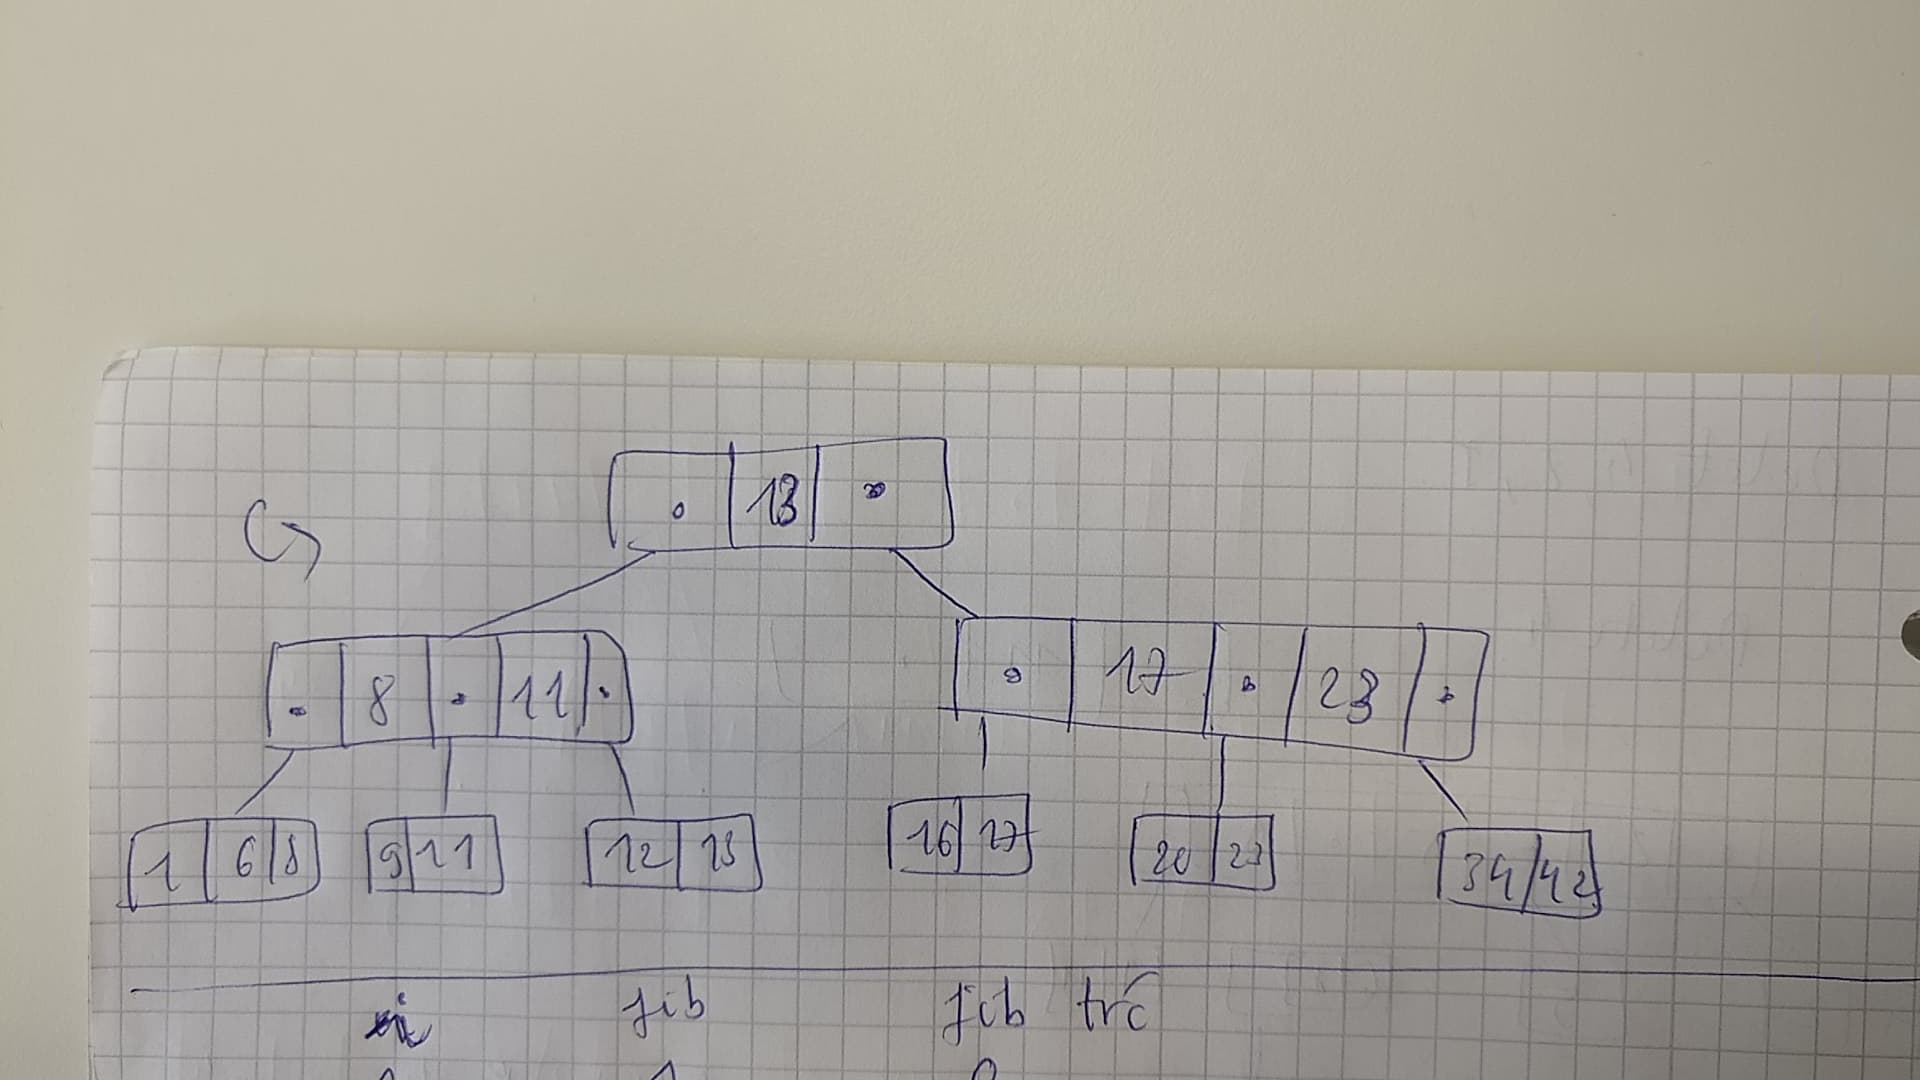 13
8 11 17 23
1 6 8 9 11 12 13 16 17 20 23 34 42
fib fib trc